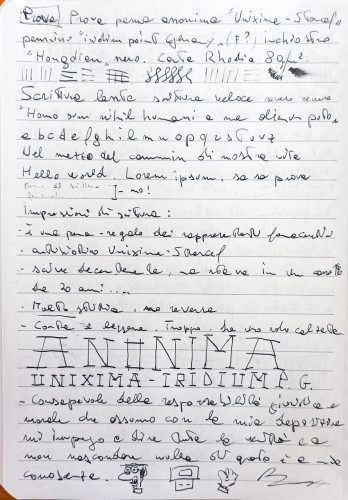 Prova Prova penna anonima "Unixime - Staraf"
pennino "iridium point Germany" (F?) inchiostro
"Hongdian" nero. Carta Rhodia 80 g/m².
Scrittura lenta scrittura veloce reverse
"Homo sum nihil humani a me alienum puto"
a b c d e f g h i l m n o p q r s t u v z
Nel mezzo del cammin di nostra vita
Hello world. Lorem ipsum. sa sa prova
]- no!
Impressioni di scrittura:
· è una penna - regalo dei rappresentanti farmaceutici
· antibiotico Unixime - Staraf
- scrive decentemente, ma stava in un
da 20 anni....
- Molto , ma reverse
- Corta e leggera. Troppo. che uso solo calzata
ANONIMA
UNIXIMA - IRIDIUM P. G.
- Consapevole della responsabilità giuridica e
morale che assumo con la mia deposizione
mi impegno a dire tutta la verità e a
non nascondere nulla di quanto è a mia
conoscenza.